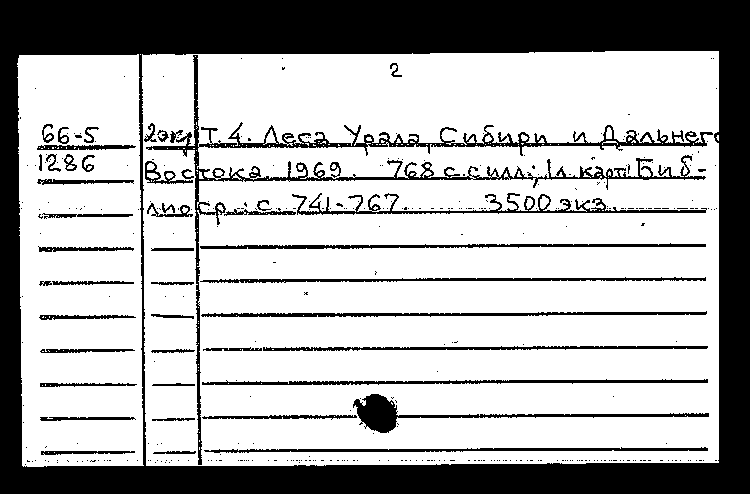 2
66-5 2экз Т. 4. Леса Урала, Сибири и Дальнего
1286 Востока. 1969. 768 с. с илл.; 1 л. карт. Биб-
лиогр.: с. 741-767. 3500 экз.